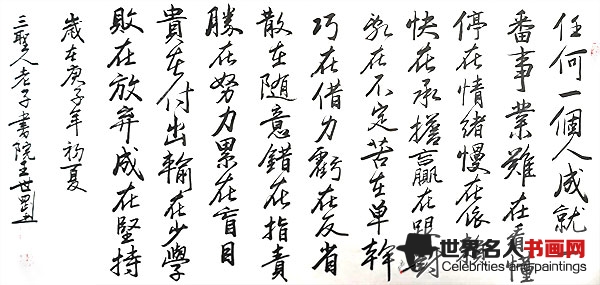 任何一個人成就
番事業難在看懂
停在情緒慢在依
快在承擔贏在跟對
在不定苦在單幹
巧在借力虧在反省
散在随意錯在指責
勝在努力累在盲目
貴在付出輸在少學
敗在放弃成在堅持
歲在庚子年初夏
三聖人老子書院王世
世界名人书画网
Celebrities and paintings